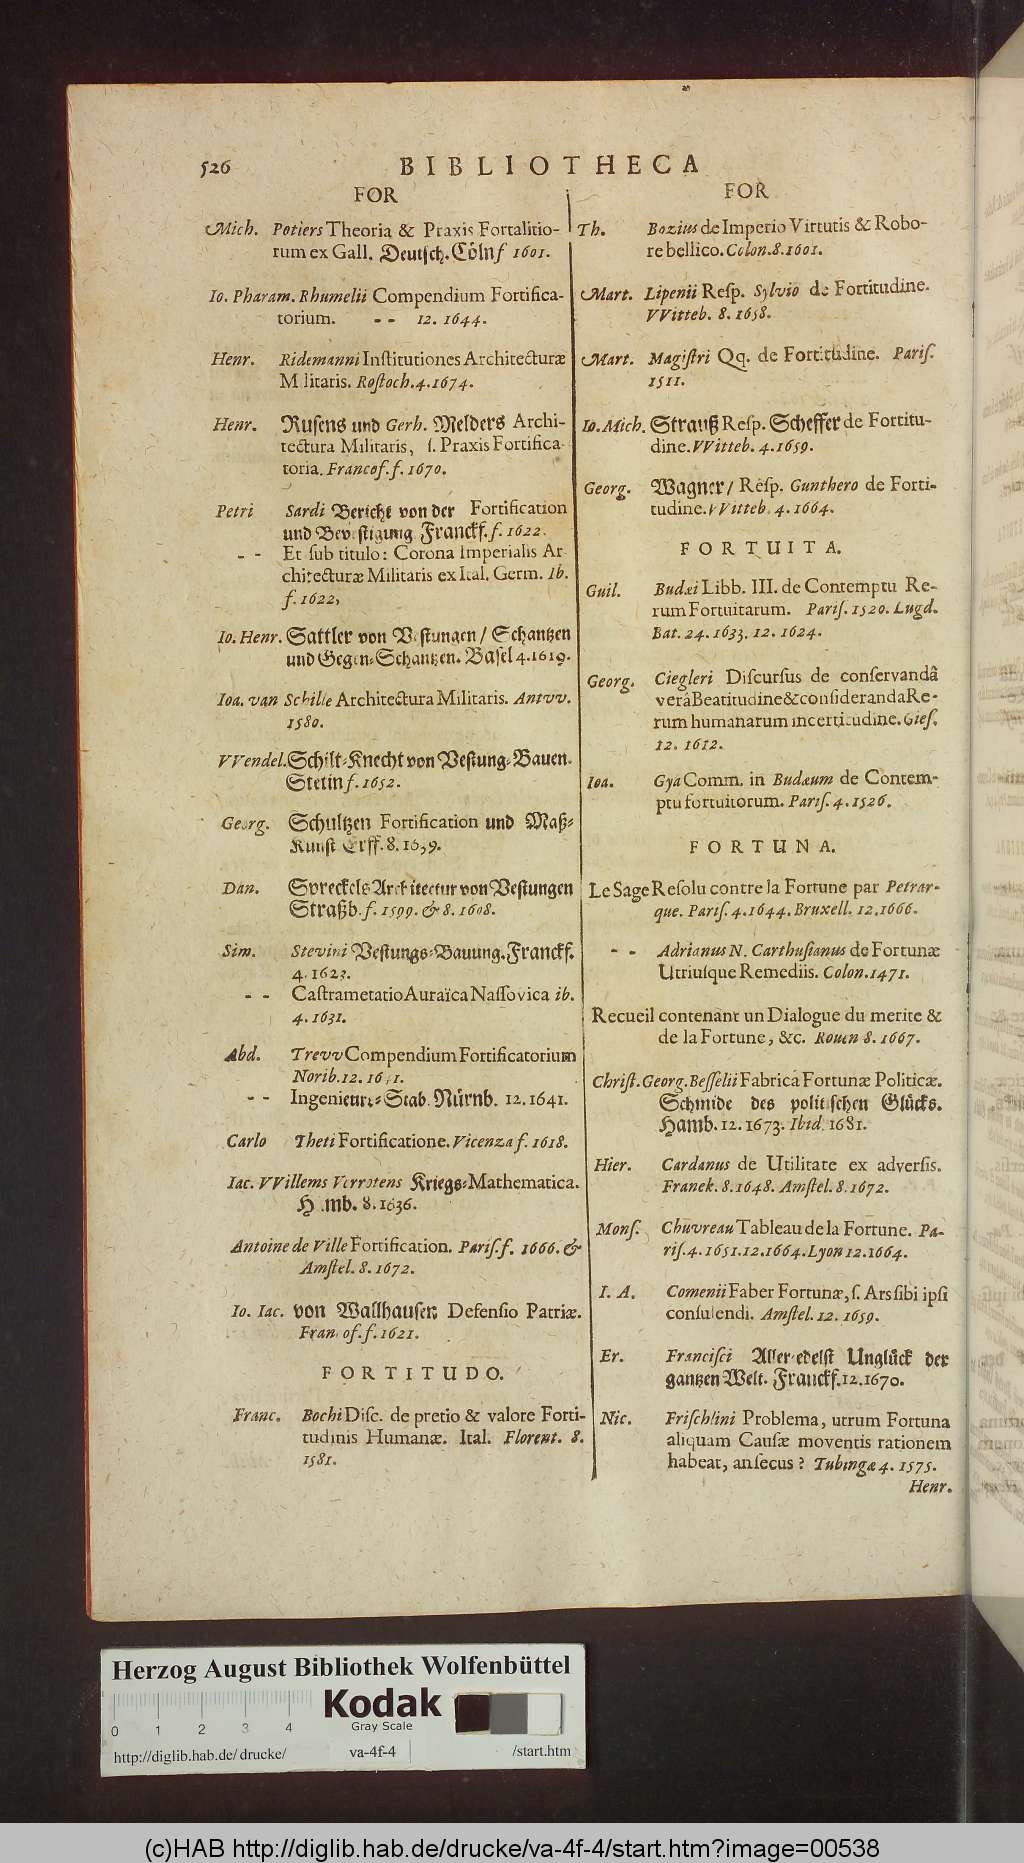 526
BIBLIOTHECA
FOR
Mich. Potiers Theoria & Praxis Fortalitio-
rum ex Gall. Deutsch. Cöln f 1601.
Io. Pharam. Rhumelii Compendium Fortifica-
torium. - - 12. 1644.
Henr. Ridemanni Institutiones Architecturæ
M litaris. Rostoch. 4. 1674.
Henr. Rusens und Gerh. Melders Archi-
tectura Militaris, s. Praxis Fortifica
toria. Francof. f. 1670.
Petri Sardi Bericht von der Fortification
und Bevestigung Franckf. f. 1622.
- - Et sub titulo: Corona Imperialis Ar
chitecturæ Militaris ex Ital. Germ. Ib.
f. 1622,
Io. Henr. Sattler von Vestungen / Schantzen
und Gegen-Schantzen. Basel 4. 1619.
Ioa. van Schille Architectura Militaris. Antvv.
1580.
VVendel. Schilt-Knecht von Vestung-Bauen.
Stetin f. 1652.
Georg. Schultzen Fortification und Maß-
Kunst Erff. 8. 1639.
Dan. Spreckels Architectur von Vestungen
Straßb. f. 1599. & 8. 1608.
Sim. Stevini Vestungs-Bauung. Franckf.
4. 1623.
- - Castrametatio Auraïca Nassovica ib.
4. 1631.
Abd. Trevv Compendium Fortificatorium
Norib. 12. 1641.
- - Ingenieurs-Stab. Nürnb. 12. 1641.
Carlo Theti Fortificatione. Vicenza f. 1618.
Iac. VVillems Verrotens Kriegs-Mathematica.
H mb. 8. 1636.
Antoine de Ville Fortification. Paris. f. 1666. &
Amstel. 8. 1672.
Io. Iac. von Wallhausen Defensio Patriæ.
Fran of. f. 1621.
FORTITUDO.
Franc. Bochi Disc. de pretio & valore Forti-
tudinis Humanæ. Ital. Florent. 8.
1581.
FOR
Th. Bozius de Imperio Virtutis & Robo-
re bellico. Colon. 8. 1601.
Mart. Lipenii Resp. Sylvio de Fortitudine.
VVitteb. 8. 1658.
Mart. Magistri Qq. de Fortitudine. Paris.
1511.
Io. Mich. Strauß Resp. Scheffer de Fortitu-
dine. VVitteb. 4. 1659.
Georg. Wagner / Resp. Gunthero de Forti-
tudine. VVitteb. 4. 1664.
FORTUITA.
Guil. Budæi Libb. III. de Contemptu Re-
rum Fortuitarum. Paris. 1520. Lugd.
Bat. 24. 1633. 12. 1624.
Georg. Ciegleri Discursus de conservandâ
verâ Beatitudine & consideranda Re-
rum humanarum incertitudine. Gies.
12. 1612.
Ioa. Gya Comm. in Budæum de Contem-
ptu fortuitorum. Paris. 4. 1526.
FORTUNA.
Le Sage Resolu contre la Fortune par Petrar-
que. Paris. 4. 1644. Bruxell. 12. 1666.
- - Adrianus N. Carthusianus de Fortunæ
Utriusque Remediis. Colon. 1471.
Recueil contenant un Dialogue du merite &
de la Fortune, &c. Rouen 8. 1667.
Christ. Georg. Besselii Fabrica Fortunæ Politicæ.
Schmide des politischen Glücks.
Hamb. 12. 1673. Ibid. 1681.
Hier. Cardanus de Utilitate ex adversis.
Franek. 8. 1648. Amstel. 8. 1672.
Mons. Chuvreau Tableau de la Fortune. Pa-
ris. 4. 1651. 12. 1664. Lyon 12. 1664.
I. A. Comenii Faber Fortunæ, s. Ars sibi ipsi
consulendi. Amstel. 12. 1659.
Er. Francisci Aller-edelst Unglück der
gantzen Welt. Franckf. 12. 1670.
Nic. Frischlini Problema, utrum Fortuna
aliquam Causæ moventis rationem
habeat, an secus? Tubingæ 4. 1575.
Henr.
Herzog August Bibliothek Wolfenbüttel
Kodak
Gray Scale
0 1 2 3 4
http://diglib.hab.de/drucke/ va-4f-4 /start.htm
(c)HAB http://diglib.hab.de/drucke/va-4f-4/start.htm?image=00538